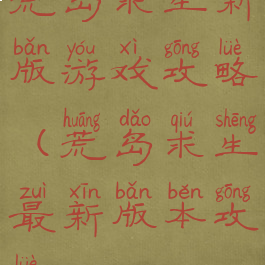 荒岛求生新
bǎn yóu xì gōng lüè
版游戏攻略
huāng dǎo qiú shēng
（荒岛求生
zuì xīn bǎn běn gōng
最新版本攻
lüè